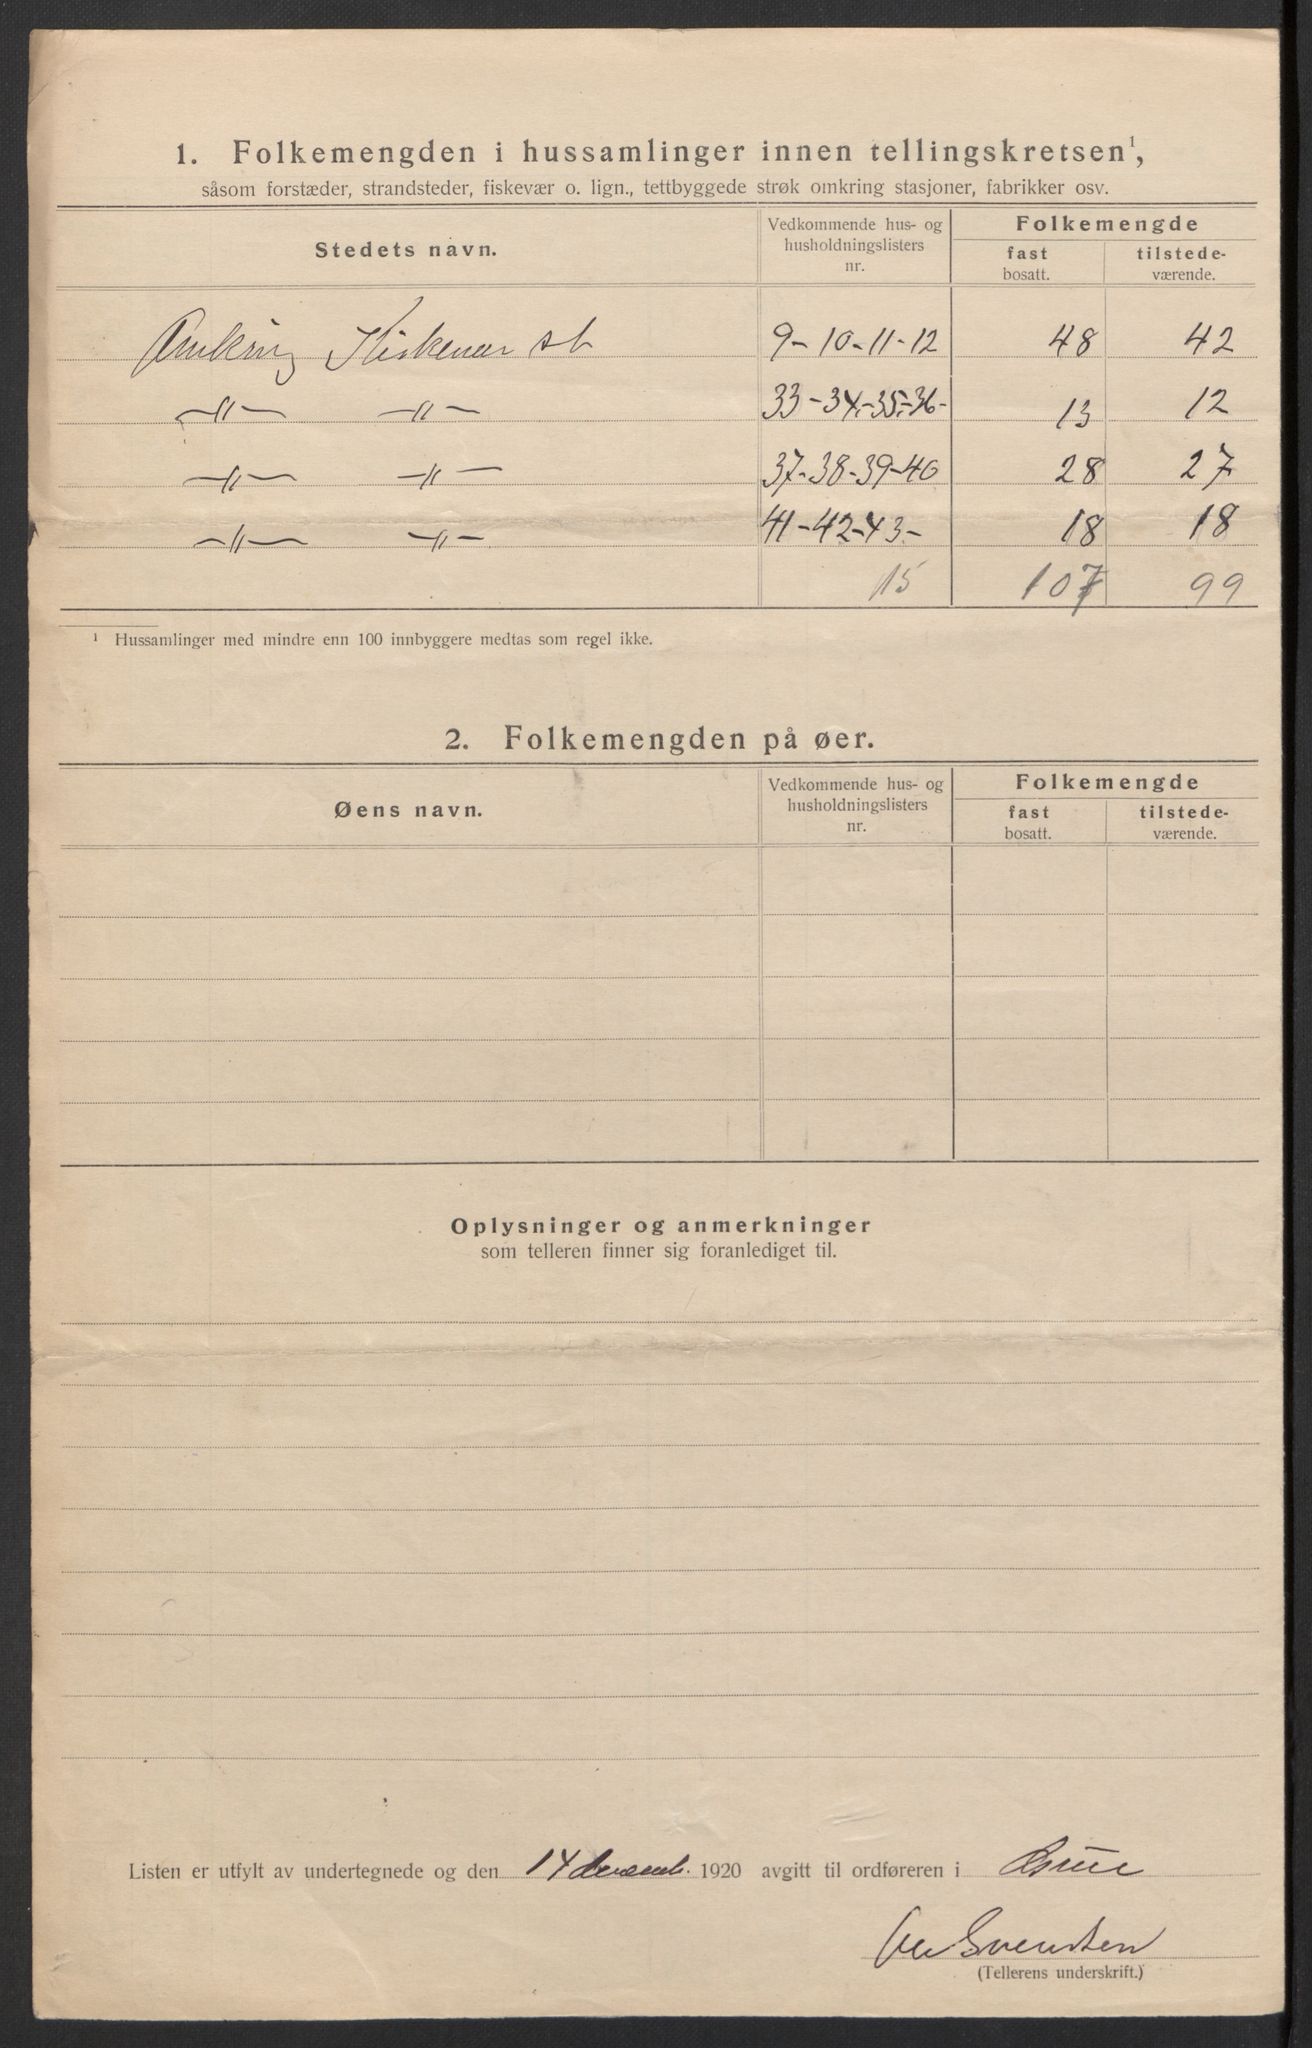 1. Folkemengden i hussamlinger innen tellingskretsen¹,
såsom forstæder, strandsteder, fiskevær o. lign., tettbyggede strøk omkring stasjoner, fabrikker osv.
Stedets navn. Vedkommende hus- og husholdningslisters nr. Folkemengde
fast bosatt. tilstede-værende.
Omkring Kirkenær st 9-10-11-12 48 42
-"- -"- 33-34-35-36- 13 12
-"- -"- 37-38-39-40 28 27
-"- -"- 41-42-43- 18 18
15 107 99
¹ Hussamlinger med mindre enn 100 innbyggere medtas som regel ikke.
2. Folkemengden på øer.
Øens navn. Vedkommende hus- og husholdningslisters nr. Folkemengde
fast bosatt. tilstede-værende.
Oplysninger og anmerkninger
som telleren finner sig foranlediget til.
Listen er utfylt av undertegnede og den 14 decemb. 1920 avgitt til ordføreren i Grue
Svendsen
(Tellerens underskrift.)